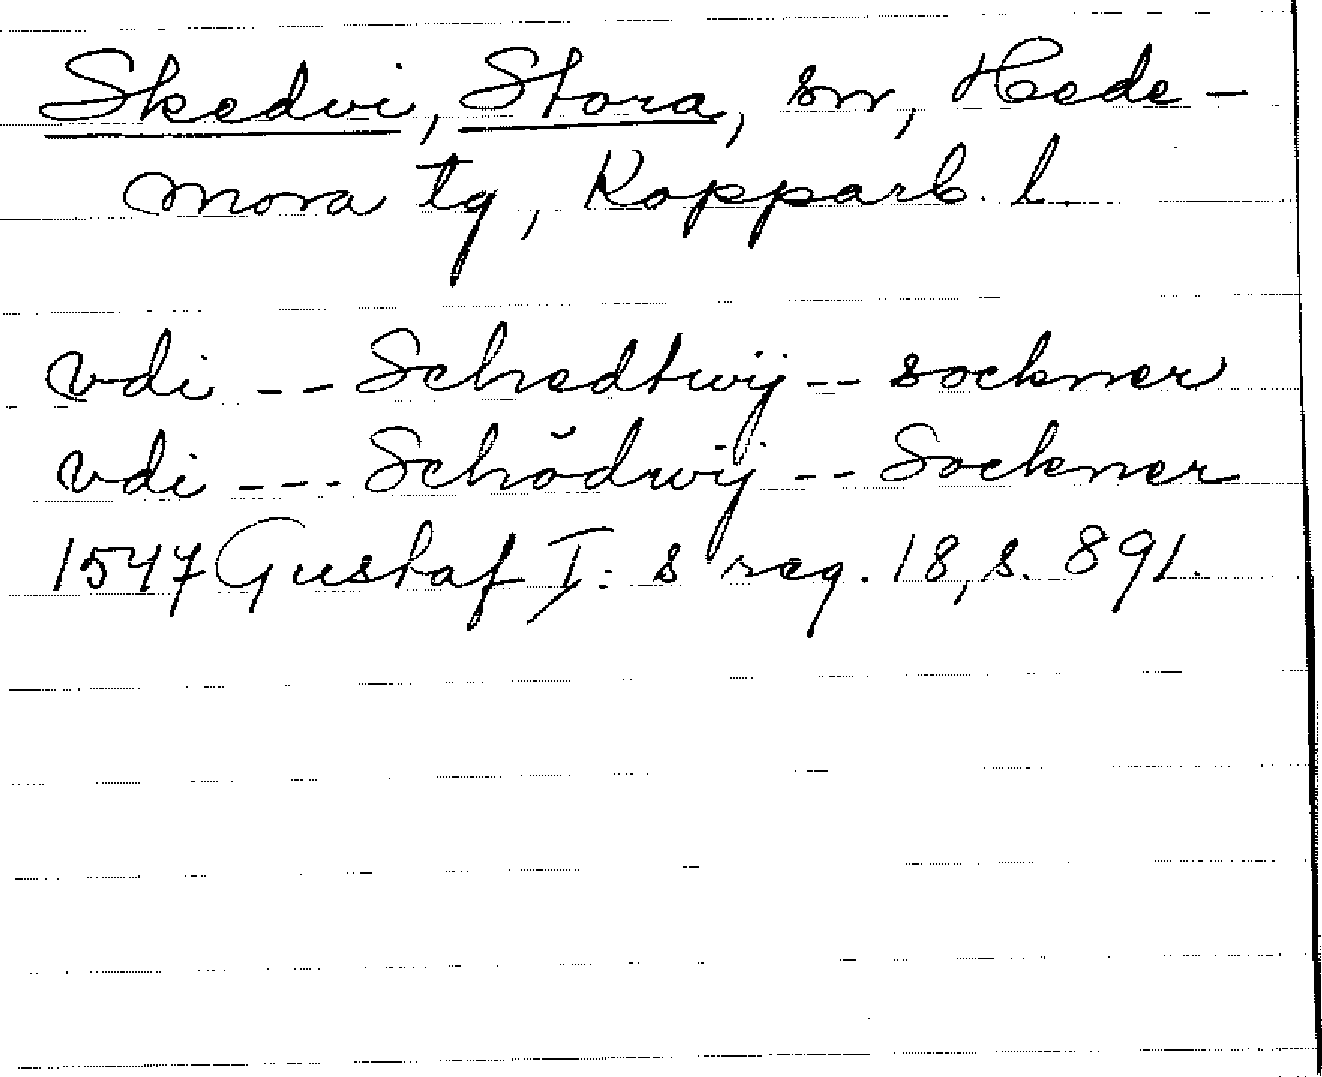 Skedvi, Stora, sn, Hede-
mora tg, Kopparb. l.
vdi -- Schedtwij -- sockner
vdi --- Schödwij -- Sockner
1547 Gustaf I: s reg. 18, s. 891.